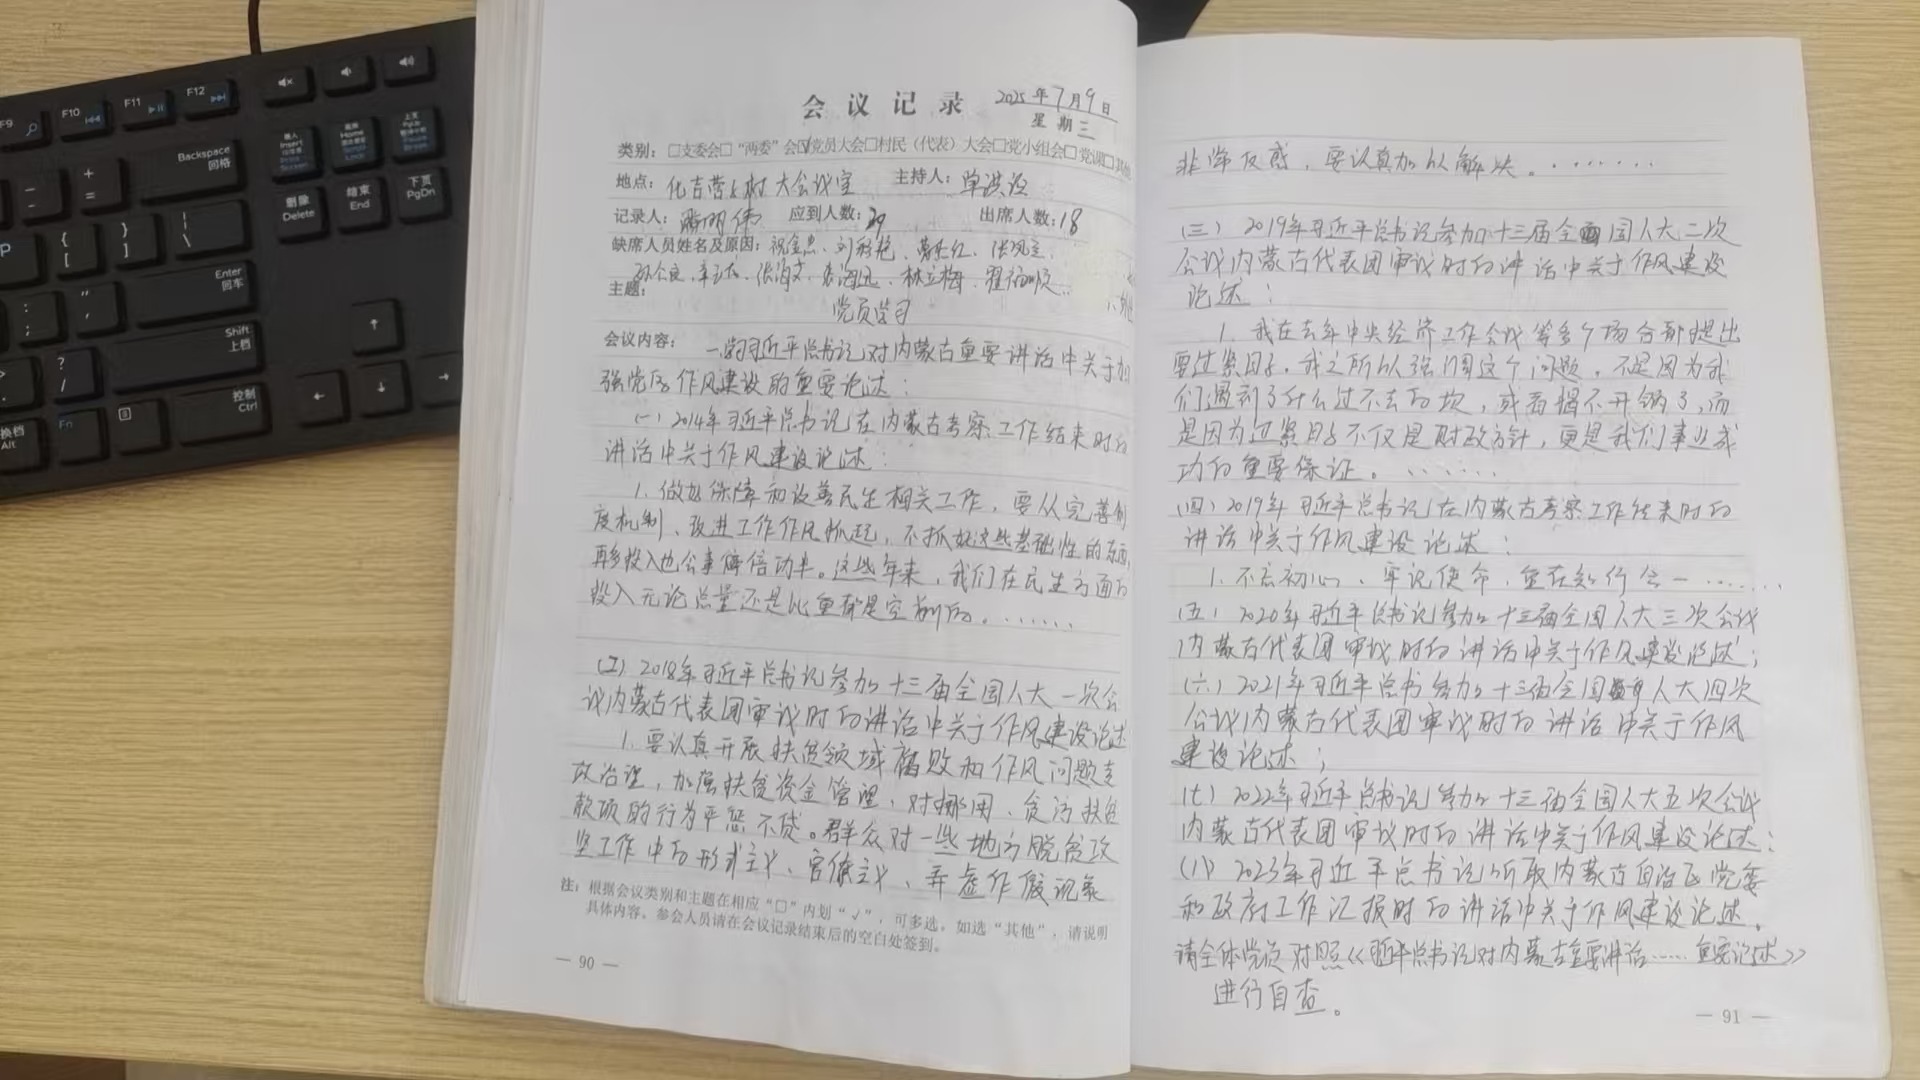 会议记录
2025年7月9日
星期三
类别：□支委会□“两委”会☑党员大会□村民（代表）大会□党小组会□党课□其他
地点：化吉营子村大会议室 主持人：单洪
记录人： 伟 应到人数：29 出席人数：18
缺席人员姓名及原因：
主题：
党员学习
会议内容：一、学习习近平总书记对内蒙古重要讲话中关于加
强党的作风建设的重要论述：
（一）2014年习近平总书记在内蒙古考察工作结束时的
讲话中关于作风建设论述：
1. 做好保障和改善民生相关工作，要从完善制
度机制、改进工作作风抓起，不抓好这些基础性的东西，
再多投入也会事倍功半。这些年来，我们在民生方面的
投入无论总量还是比重都是空前的。......
（二）2018年习近平总书记参加十三届全国人大一次会
议内蒙古代表团审议时的讲话中关于作风建设论述
1. 要认真开展扶贫领域腐败和作风问题专
项治理，加强扶贫资金管理，对挪用、贪污扶贫
款项的行为严惩不贷。群众对一些地方脱贫攻
坚工作中的形式主义、官僚主义、弄虚作假现象
注：根据会议类别和主题在相应“□”内划“√”，可多选。如选“其他”，请说明
具体内容。参会人员请在会议记录结束后的空白处签到。
— 90 —
非常反感，要认真加以解决。.......
（三）2019年习近平总书记参加十三届全国人大二次
会议内蒙古代表团审议时的讲话中关于作风建设
论述：
1. 我在去年中央经济工作会议等多个场合都提出
要过紧日子。我之所以强调这个问题，不是因为我
们遇到了什么过不去的坎，或者揭不开锅了，而
是因为过紧日子不仅是财政方针，更是我们事业成
功的重要保证。......
（四）2019年习近平总书记在内蒙古考察工作结束时的
讲话中关于作风建设论述：
1. 不忘初心、牢记使命，重在知行合一......
（五）2020年习近平总书记参加十三届全国人大三次会议
内蒙古代表团审议时的讲话中关于作风建设论述；
（六）2021年习近平总书参加十三届全国人大四次
会议内蒙古代表团审议时的讲话中关于作风
建设论述；
（七）2022年习近平总书记参加十三届全国人大五次会议
内蒙古代表团审议时的讲话中关于作风建设论述；
（八）2023年习近平总书记听取内蒙古自治区党委
和政府工作汇报时的讲话中关于作风建设论述。
请全体党员对照《习近平总书记对内蒙古重要讲话......重要论述》
进行自查。
— 91 —
F9
F10
F11
F12
Backspace
回格
Enter
回车
Shift
上档
控制
Ctrl
换档
Alt
Fn
插入
Insert
Home
上页
PgUp
删除
Delete
结束
End
下页
PgDn